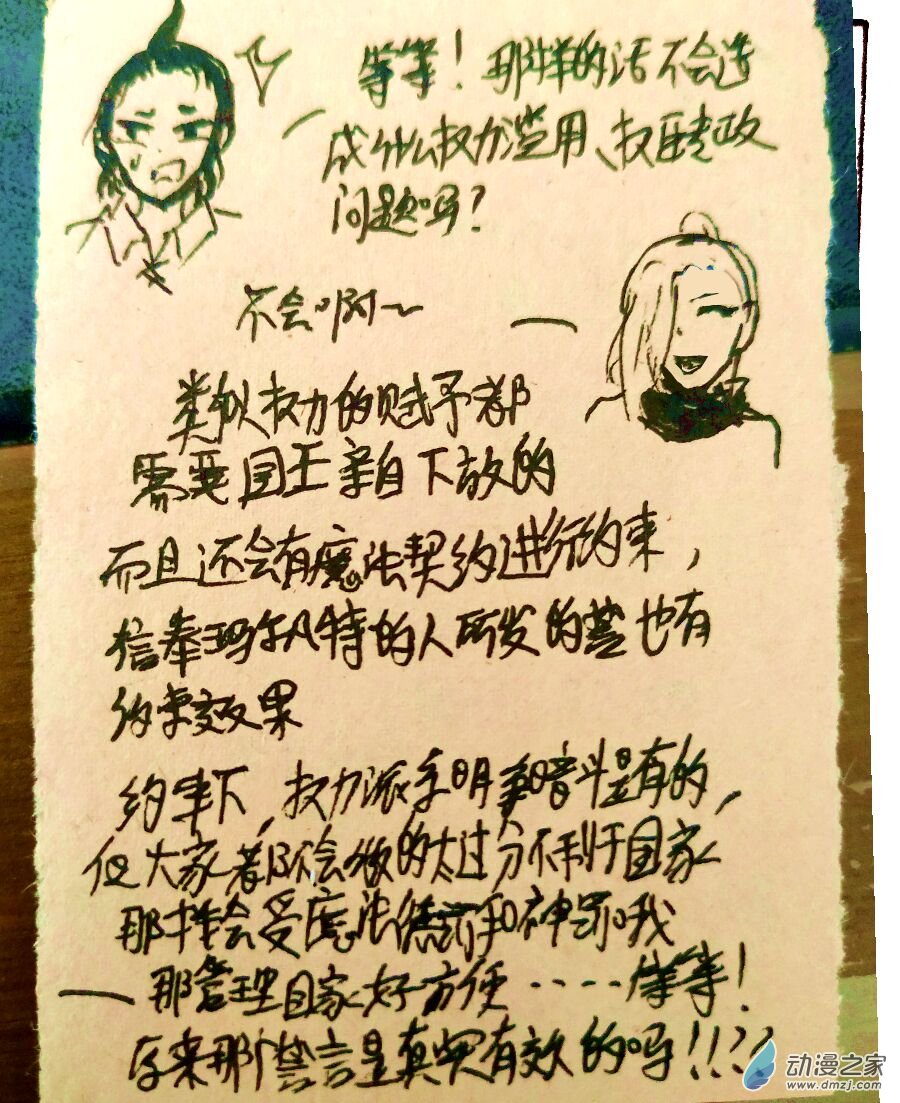 等等！那样的话不会造
成什么权力滥用、权臣专政
问题吗？
不会啊～
类似权力的赋予都
需要国王亲自下放的
而且还会有魔法契约进行约束，
信奉玛尔凡特的人所发的誓也有
约束效果
约束下，权力派系明争暗斗是有的，
但大家都不会做的太过分不利于国家
那样会受魔法惩罚和神罚哦
那管理国家好方便……等等！
原来那个誓言是真实有效的吗!!??
动漫之家
www.dmzj.com